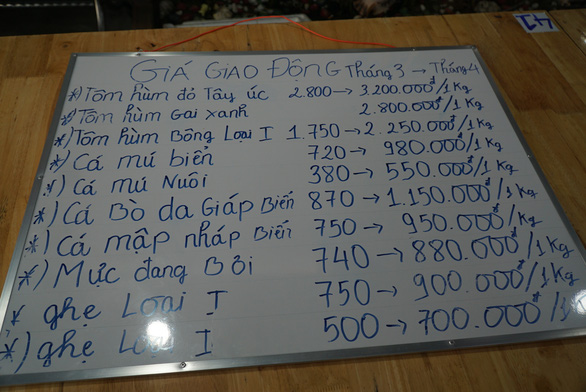 GIÁ GIAO ĐỘNG Tháng 3 → Tháng 4
*) Tôm hùm đỏ Tây úc 2.800 → 3.200.000đ/1 Kg
*) Tôm hùm Gai xanh 2.800.000đ/1 Kg
*) Tôm hùm Bông Loại I 1.750 → 2.250.000đ/1 Kg
*) Cá mú biển 720 → 980.000đ/1 Kg
*) Cá mú Nuôi 380 → 550.000đ/1 Kg
*) Cá Bò da Giáp Biển 870 → 1.150.000đ/1 Kg
*) Cá mập nháp Biển 750 → 950.000đ/1 Kg
*) Mực đang Bơi 740 → 880.000đ/1 Kg
* ghẹ Loại I 750 → 900.000đ/1 Kg
*) ghẹ Loại I 500 → 700.000đ/1 K